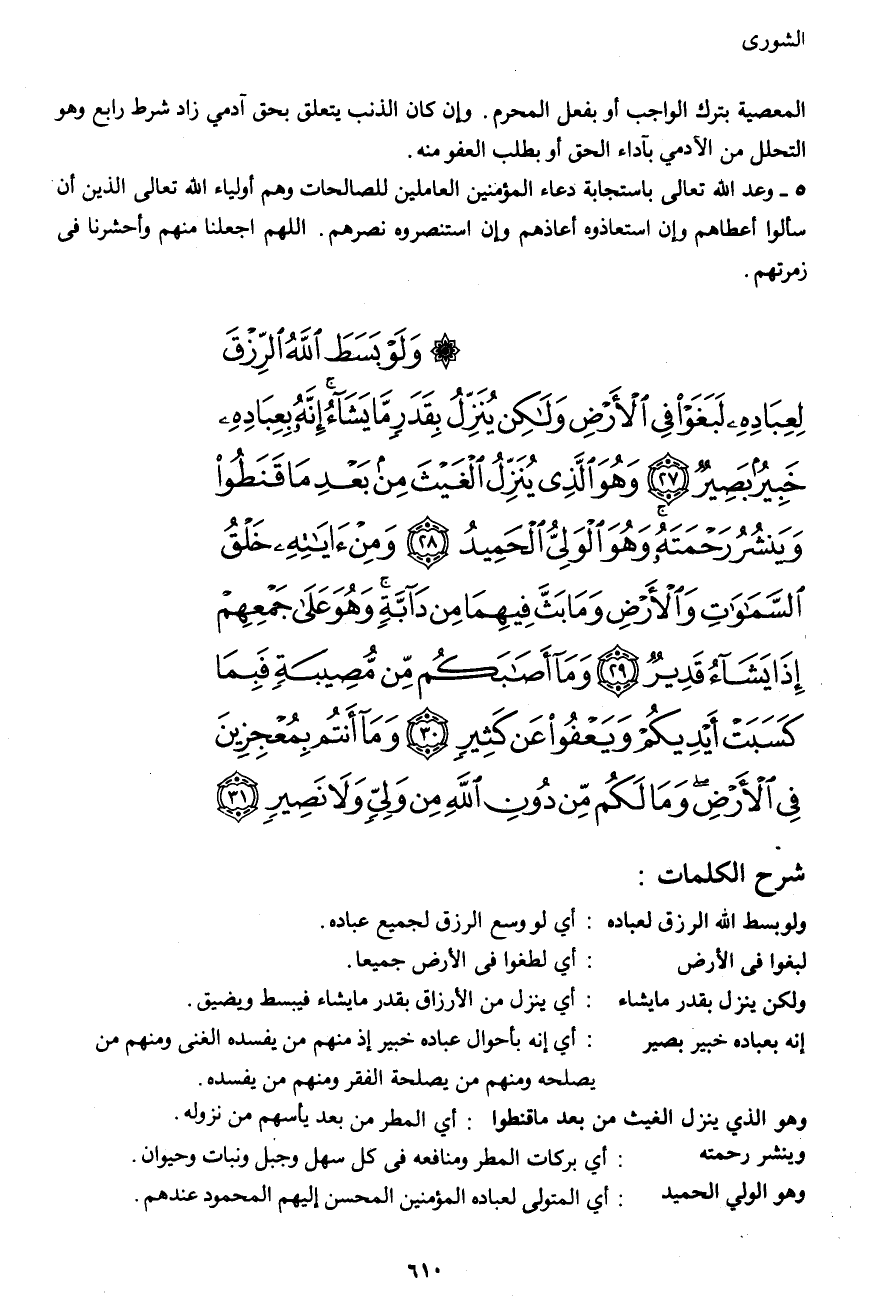 الشورى
المعصية بترك الواجب أو بفعل المحرم. وإن كان الذنب يتعلق بحق آدمي زاد شرط رابع وهو
التحلل من الآدمي بآداء الحق أو بطلب العفو منه.
٥ ـ وعد الله تعالى باستجابة دعاء المؤمنين العاملين للصالحات وهم أولياء الله تعالى الذين أن
سألوا أعطاهم وإن استعاذوه أعاذهم وإن استنصروه نصرهم. اللهم اجعلنا منهم وأحشرنا فى
زمرتهم.
۞ وَلَوْ بَسَطَ ٱللَّهُ ٱلرِّزْقَ
لِعِبَادِهِۦ لَبَغَوْا۟ فِى ٱلْأَرْضِ وَلَـٰكِن يُنَزِّلُ بِقَدَرٍ مَّا يَشَآءُ ۚ إِنَّهُۥ بِعِبَادِهِۦ
خَبِيرٌۢ بَصِيرٌ ﴿٢٧﴾ وَهُوَ ٱلَّذِى يُنَزِّلُ ٱلْغَيْثَ مِنۢ بَعْدِ مَا قَنَطُوا۟
وَيَنشُرُ رَحْمَتَهُۥ ۚ وَهُوَ ٱلْوَلِىُّ ٱلْحَمِيدُ ﴿٢٨﴾ وَمِنْ ءَايَـٰتِهِۦ خَلْقُ
ٱلسَّمَـٰوَٰتِ وَٱلْأَرْضِ وَمَا بَثَّ فِيهِمَا مِن دَآبَّةٍ ۚ وَهُوَ عَلَىٰ جَمْعِهِمْ
إِذَا يَشَآءُ قَدِيرٌ ﴿٢٩﴾ وَمَآ أَصَـٰبَكُم مِّن مُّصِيبَةٍ فَبِمَا
كَسَبَتْ أَيْدِيكُمْ وَيَعْفُوا۟ عَن كَثِيرٍ ﴿٣٠﴾ وَمَآ أَنتُم بِمُعْجِزِينَ
فِى ٱلْأَرْضِ ۖ وَمَا لَكُم مِّن دُونِ ٱللَّهِ مِن وَلِىٍّ وَلَا نَصِيرٍ ﴿٣١﴾
شرح الكلمات :
ولو بسط الله الرزق لعباده : أي لو وسع الرزق لجميع عباده.
لبغوا فى الأرض : أي لطغوا فى الأرض جميعا.
ولكن ينزل بقدر مايشاء : أي ينزل من الأرزاق بقدر مايشاء فيبسط ويضيق.
إنه بعباده خبير بصير : أي إنه بأحوال عباده خبير إذ منهم من يفسده الغنى ومنهم من
يصلحه ومنهم من يصلحة الفقر ومنهم من يفسده.
وهو الذي ينزل الغيث من بعد ماقنطوا : أي المطر من بعد يأسهم من نزوله.
وينشر رحمته : أي بركات المطر ومنافعه فى كل سهل وجبل ونبات وحيوان.
وهو الولي الحميد : أي المتولى لعباده المؤمنين المحسن إليهم المحمود عندهم.
٦١٠